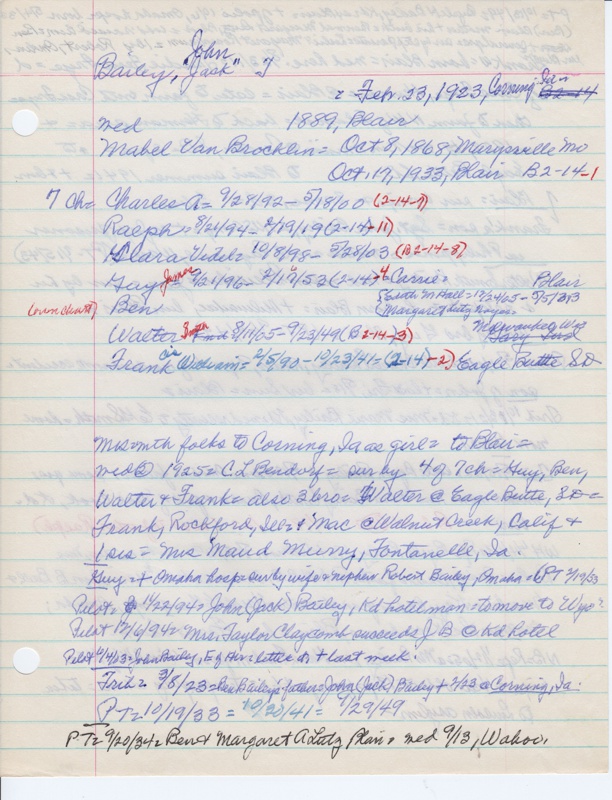 "John
Bailey, "Jack" J
= Feb. 23, 1923, Corning, Ia
B2-14
med 1889, Blair
Mabel Van Brocklin = Oct 8, 1868, Marysville Mo
Oct. 17, 1933, Plair B2-14-1
7 Ch = Charles A = 9/28/92 - 5/18/00 (2-14-7)
Ralph = 8/21/94 - 2/19/19 (2-14-11)
Clara Videl = 10/8/98 - 5/28/03 (B2-14-8)
Guy James = 9/21/96 - 2/17/53 (2-14)-4 = Carrie = Blair
Edith M Hall = 12/24/65 - 5/5/33
Ben Margaret Lutz
Walter 8/19/05 - 9/23/49 (B 2-14-3) Milwaukee Wis
Frank William = 2/5/90 - 10/23/41 = (2-14)-2) Eagle Butte SD
Mrs = mth folks to Corning, Ia as girl = to Blair =
med @ 1925 = C L Bendorf = sur by 4 of 7 ch = Guy, Ben,
Walter & Frank = also 3 bro = Walter @ Eagle Butte, SD =
Frank, Rockford, Ill = & Mac @ Walnut Creek, Calif &
1 sis = Mrs Maud Murry, Fontanelle, Ia.
Guy = + Omaha hosp = sur by wife & nephew Robert Bailey, Omaha = PT 2/19/53
Pilot = 11/22/94 = John (Jack) Bailey, Kd hotel man = to move to Wyo?
Pilot 12/6/94 = Mrs. Taylor Claycomb succeeds J B @ Kd hotel
Pilot = John Bailey, + last week.
Trib = 3/8/23 = Ben Bailey's father = John (Jack) Bailey + 2/23 @ Corning, Ia.
P T = 10/19/33 = 10/30/41 = 9/29/49
P T = 9/20/34 = Ben & Margaret A Lutz Plair = med 9/13, Wahoo,